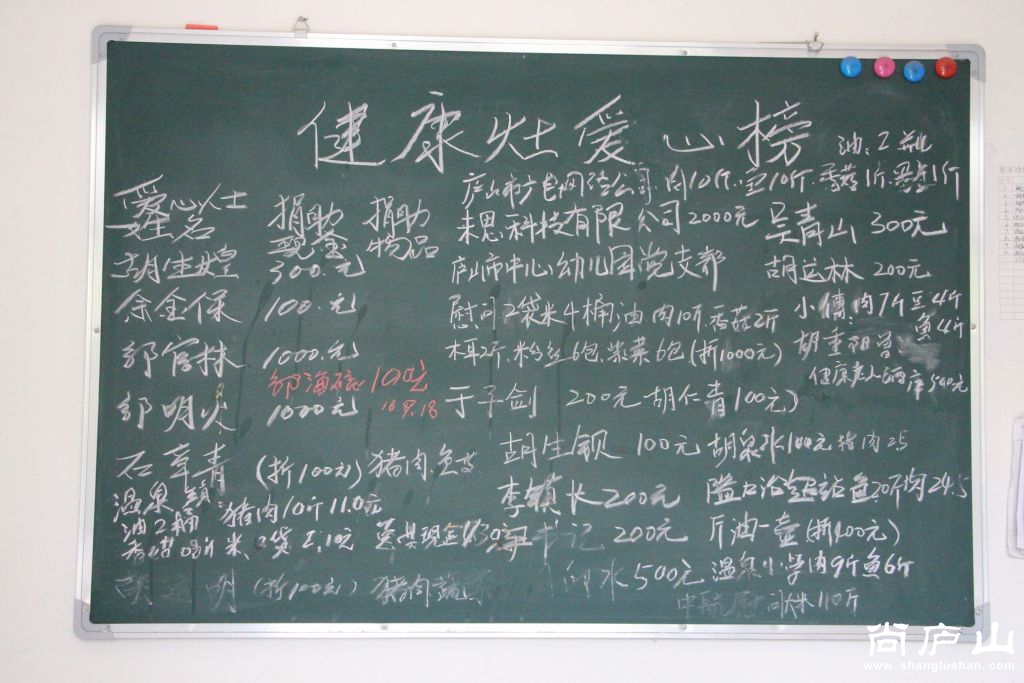 健康灶爱心榜
油:2瓶
爱心人士
姓名
捐助
现金
捐助
物品
胡生煌 300.元
余金保 100.元
邹官林 1000.元
邹海 100元
16.9.18
邹明火 1000元
石章青 (折100元) 猪肉.鱼
温泉镇 猪肉10斤 110元
油2桶
米 现金
明 (折100元) 猪肉蔬
庐山市广电网络公司.肉10斤.鱼10斤.香菇1斤.1斤
来思科技有限公司2000元 吴青山 300元
庐山市中心幼儿园党支部 胡运林 200元
慰问2袋米4桶油 肉10斤.香菇2斤
木耳2斤.粉丝6包.紫菜6包(折1000元)
小傅:肉7斤豆4斤
鱼4斤
胡重阳
健康老人 540元
于子剑 200元 胡仁青100元)
胡生钡 100元 胡泉水100元 猪肉25
李镇长200元 20斤肉24.5
书记 200元 斤油一壶(折400元)
水500元 温泉小学肉9斤鱼6斤
中航慰问米110斤
尚庐山
www.shanglushan.com